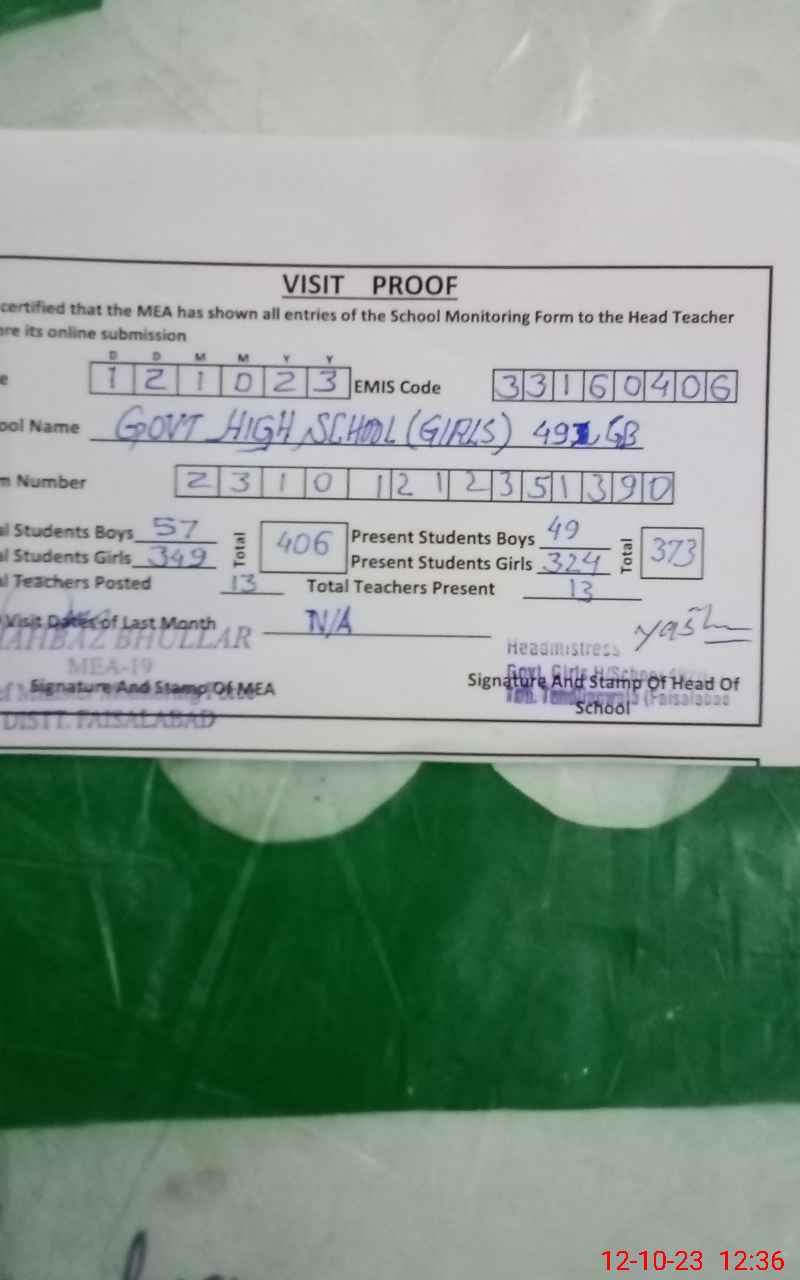 VISIT PROOF
certified that the MEA has shown all entries of the School Monitoring Form to the Head Teacher
re its online submission
D D M M Y Y
e 1 2 1 0 2 3 EMIS Code 3 3 1 6 0 4 0 6
ool Name GOVT HIGH SCHOOL (GIRLS) 492 GB
m Number 2 3 1 0 1 2 1 2 3 5 1 3 9 0
al Students Boys 57 Total 406 Present Students Boys 49 Total 373
al Students Girls 349 Present Students Girls 324
al Teachers Posted 13 Total Teachers Present 13
Visit Dates of Last Month N/A
AHBAZ BHULLAR
MEA-19
Headmistress
Signature And Stamp Of MEA
Signature And Stamp Of Head Of
School
DISTT. FAISALABAD
12-10-23 12:36